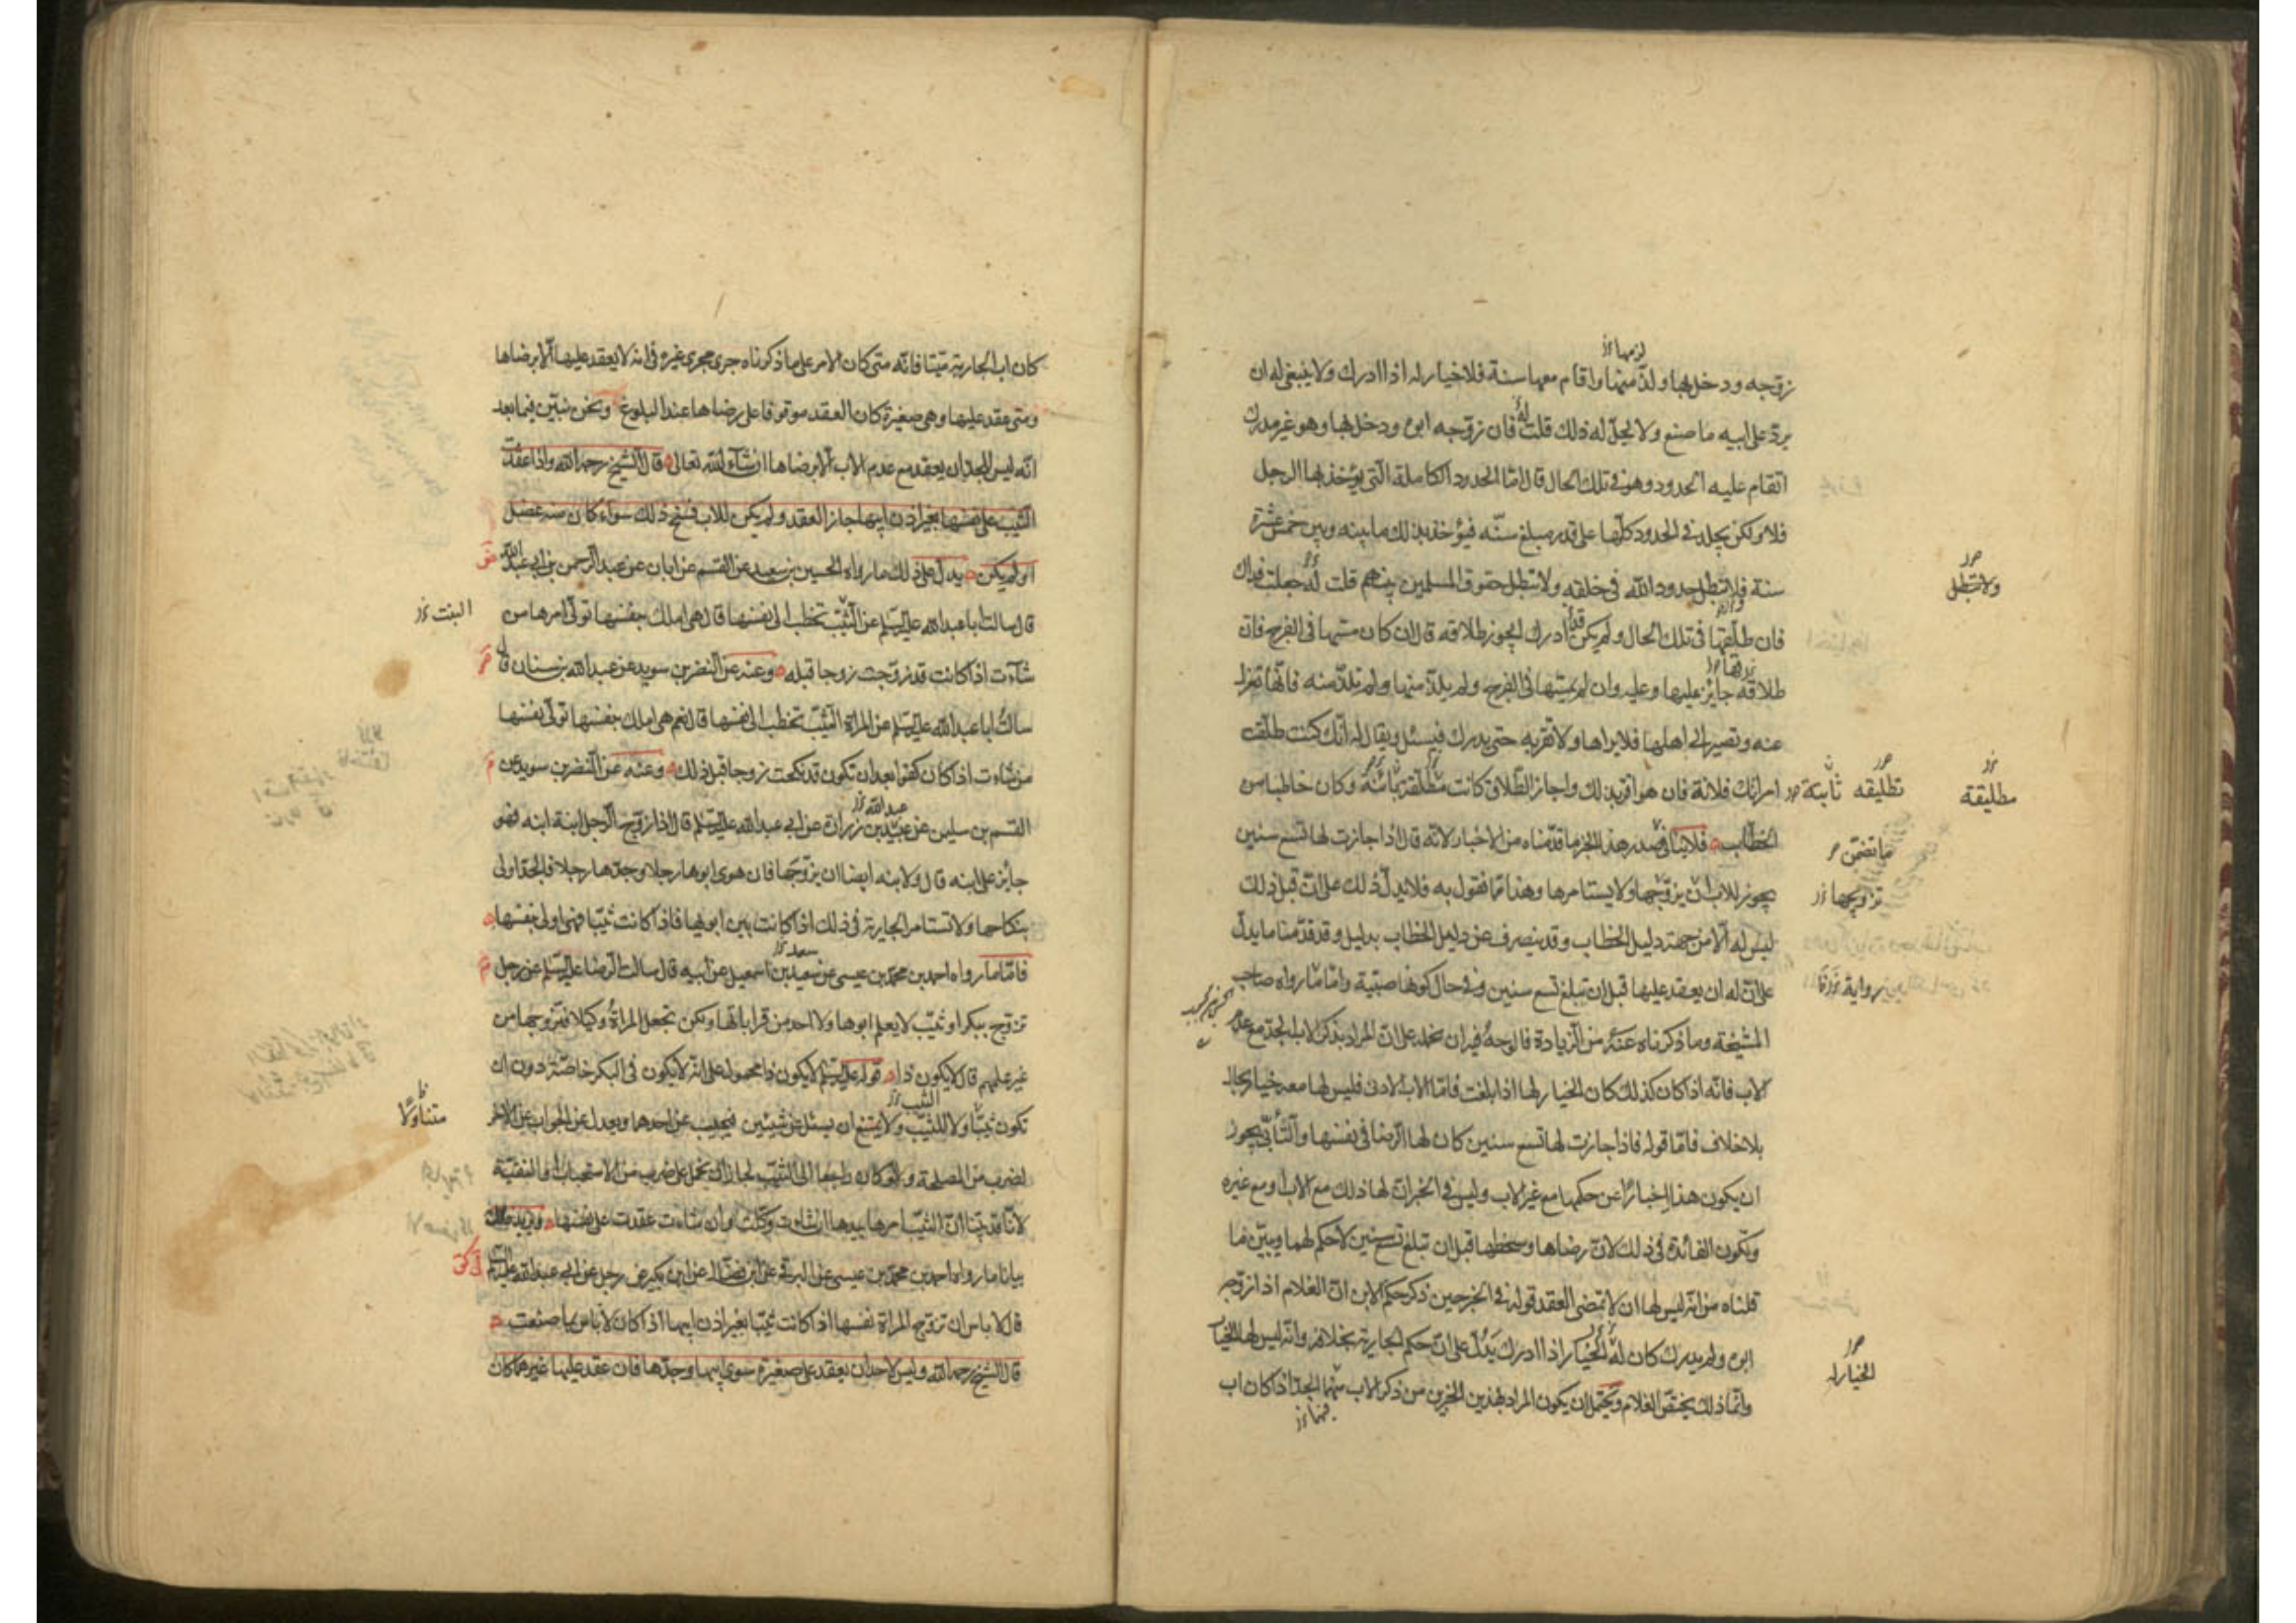 زوّجه ودخل بها ولذّ منها واقام معها سنة فلا خيار له اذا ادرك ولا ينبغي له ان
يردّ على ابيه ما صنع ولا يحلّ له ذلك قلت له فان زوّجه ابوه ودخل بها وهو غير مدرك
اتقام عليه الحدود وهو في تلك الحال قال امّا الحدود الكاملة التي يؤخذ بها الرجل
فلا ولكن يجلد في الحدود كلّها على قدر مبلغ سنّه فيؤخذ بذلك ما بينه وبين خمس عشرة
سنة فلا تبطل حدود الله في خلقه ولا تبطل حقوق المسلمين بينهم قلت له جعلت فداك
ولا تبطل
فان طلّقها في تلك الحال ولم يكن قد ادرك ايجوز طلاقه قال ان كان مسّها في الفرج فان
طلاقه جايز عليها وعليه وان لم يمسّها في الفرج ولم يلذّ منها ولم تلذّ منه فانّها تعزل
عنه وتصير الى اهلها فلا يراها ولا تقربه حتى يدرك فيسئل ويقال له انّك كنت طلّقت
امراتك فلانة فان هو اقرّ بذلك واجاز الطلاق كانت تطليقة بائنة وكان خاطبا من
تطليقه
ثابتة
مطليقة
الخطّاب فلا ينافي صدر هذا الخبر ما قدّمناه من الاخبار لانّه قال اذا جازت لها تسع سنين
ما تضمّن
يجوز للاب ان يزوّجها ولا يستامرها وهذا ممّا نقول به فلا يدلّ ذلك على انّ قبل ذلك
تزويجها
ليس له الّا من جهة دليل الخطاب وقد ينصرف عن دليل الخطاب بدليل وقد قدّمنا ما يدلّ
على انّ له ان يعقد عليها قبل ان تبلغ تسع سنين وفي حال كونها صبيّة وامّا ما رواه صاحب
رواية
المشيخة وما ذكرناه عنه من الزيادة فالوجه فيه ان نحمله على انّ المراد بذكر الاب الجدّ مع عدم
الاب فانّه اذا كان كذلك كان الخيار لها اذا بلغت فامّا الاب الادنى فليس لها معه خيار بحال
بلا خلاف فامّا قوله فاذا جازت لها تسع سنين كان لها الرضا في نفسها والتأبّي يجوز
ان يكون هذا اخبارًا عن حكمها مع غير الاب وليس في الخبر انّ لها ذلك مع الاب او مع غيره
وتكون الفائدة في ذلك لانّ رضاها وسخطها قبل ان تبلغ تسع سنين لا حكم لهما ويبيّن ما
قلناه من انّه ليس لها ان لا تمضى العقد قوله في الخبر حين ذكر حكم الابن انّ الغلام اذا زوّجه
ابوه ولم يدرك كان له الخيار اذا ادرك يدُلّ على انّ حكم الجارية بخلافه وانّه ليس لها الخيار
الخيار له
وانّما ذلك يختصّ الغلام ويحتمل ان يكون المراد بهذين الخبرين من ذكر الاب منهما الجدّ اذا كان اب
فيهما
كان اب الجارية ميّتا فانّه متى كان الامر على ما ذكرناه جرى مجرى غيره في انه لا يعقد عليها الّا برضاها
ومتى عقد عليها وهي صغيرة كان العقد موقوفا على رضاها عند البلوغ ونحن نبيّن فيما بعد
انّه ليس للجدّ ان يعقد مع عدم الاب الّا برضاها ان شآء الله تعالى قال الشيخ رحمه الله واذا عقدت
الثيّب على نفسها بغير اذن ابيها جاز العقد ولم يكن للاب فسخ ذلك سواء كان منه عضل
او لم يكن يدلّ على ذلك ما رواه الحسين بن سعيد عن القسم عن ابان عن عبد الرحمن بن ابي عبد الله
قال سالت ابا عبد الله عليه السلم عن الثيّب تخطب الى نفسها قال هي املك بنفسها تولّى امرها من
البنت
شآءت اذا كانت قد تزوّجت زوجا قبله وعنه عن النضر بن سويد عن عبد الله بن سنان قال
سالتُ ابا عبد الله عليه السلم عن المراة الثيّب تخطب الى نفسها قال نعم هي املك بنفسها تولّى نفسها
من شاءت اذا كان كفوا بعد ان تكون قد نكحت زوجا قبل ذلك وعنه عن النضر بن سويد عن
القسم بن سليمن عن عبيد بن زرارة عن ابي عبد الله عليه السلم قال اذا زوّج الرجل ابنة ابنه فهو
عبد الله
جائز على ابنه قال ولابنه ايضا ان يزوّجها فان هوى ابوها رجلا وجدّها رجلا فالجدّ اولى
بنكاحها ولا تستامر الجارية في ذلك اذا كانت بين ابويها فاذا كانت ثيّبا فهي اولى بنفسها
فامّا ما رواه احمد بن محمّد بن عيسى عن سعيد بن اسمعيل عن ابيه قال سالت الرضا عليه السلم عن رجل
سعد
تزوّج ببكر او ثيّب لا يعلم ابوها ولا احد من قراباتها ولكن تجعل المراةُ وكيلا فتزوّجها من
غير علمهم قال لا يكون ذا قوله عليه السلم لا يكون ذا محمول على انّه لا يكون في البكر خاصّة دون ان
تكون ثيّبًا ولا للثيّب ولا يمتنع ان يسئل عن شيئين فيجيب عن احدهما ويعدل عن الجواب عن الاخر
الثيب
متناولا
لضرب من المصلحة ولو كان راجعا الى الثيّب لجاز ان يحمل على ضرب من الاستحباب او التقيّة
لانّا قد بيّنا انّ الثيّب امرها بيدها ان شاءت وكلت وان شاءت عقدت على نفسها ويزيد ذلك
بيانا ما رواه احمد بن محمّد بن عيسى عن البرقي عن ابن فضّال عن ابن بكير عن رجل عن ابي عبد الله عليه السلم
قال لا باس ان تزوّج المراة نفسها اذا كانت ثيّبا بغير اذن ابيها اذا كان لا باس بما صنعت
قال الشيخ رحمه الله وليس لاحد ان يعقد على صغيرة سوى ابيها وجدّها فان عقد عليها غيرهما كان